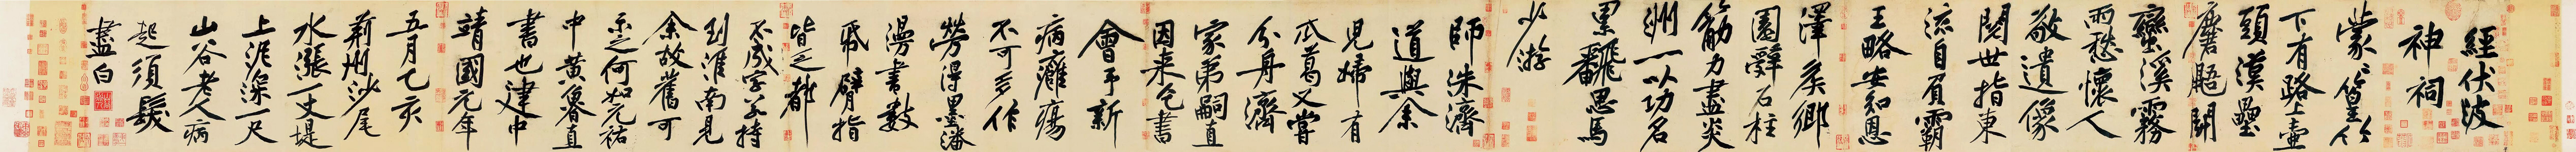 經伏波
神祠
蒙〻篁竹
下有路上壺
頭漢壘
麏鼯鬭
蠻溪霧
雨愁懷人
敬遺像
閱世指東
流自負霸
王略安知恩
澤侯鄉
園辭石柱
筋力盡炎
洲一以功名
累飜思馬
少游
師洙濟
道與余
兒婦有
瓜葛又嘗
分舟濟
家弟嗣直
因来乞書
會予新
病癰瘍
不可多作
勞得墨瀋
漫書數
紙臂指
皆乏都
不成字若持
到淮南見
余故舊可
示之何如元祐
中黃魯直
書也建中
靖國元年
五月乙亥
荊州沙尾
水漲一丈堤
上泥深一尺
山谷老人病
起須髮
盡白